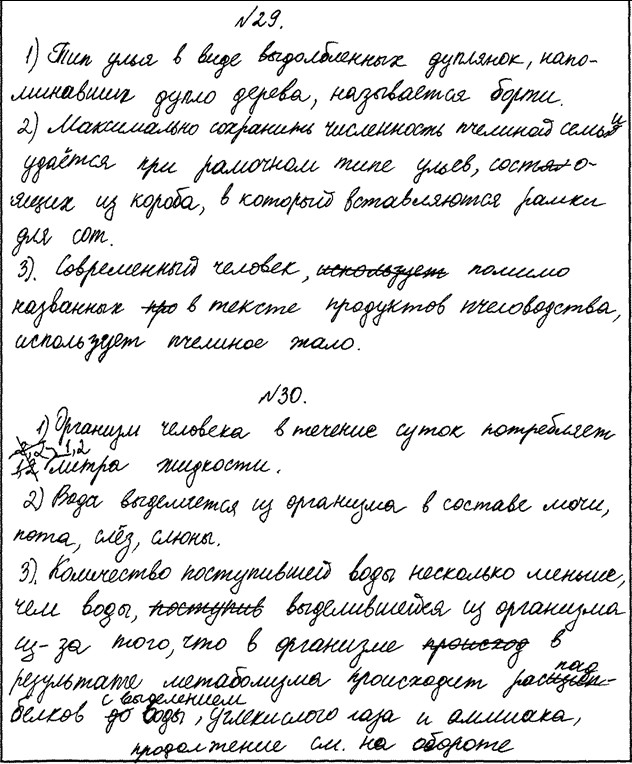 №29.
1) Тип улья в виде выдолбленных дуплянок, напо-
минавших дупло дерева, называется борти.
2) Максимально сохранить численность пчелиной семьи
удаётся при рамочном типе ульев, состо-
ящих из короба, в который вставляются рамки
для сот.
3). Современный человек, использует помимо
названных про в тексте продуктов пчеловодства,
использует пчелиное жало.
№30.
1) Организм человека в течение суток потребляет
2,2 1,2
1,2 литра жидкости.
2) Вода выделяется из организма в составе мочи,
пота, слёз, слюны.
3). Количество поступившей воды несколько меньше,
чем воды, поступив выделившейся из организма
из-за того, что в организме происход в
результате метаболизма происходит распад
с выделением
белков до воды, углекислого газа и аммиака,
продолжение см. на обороте